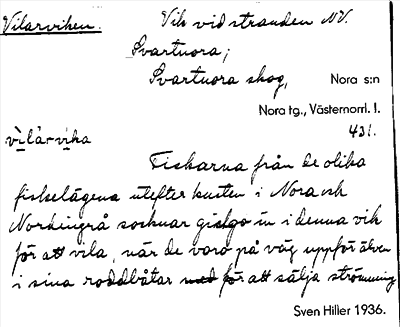 Vilarviken. Vik vid stranden NV.
Svartnora;
Svartnora skog, Nora s:n
Nora tg., Västernorrl. l.
431.
vi̠lar-vi̠ka
Fiskarna från de olika
fiskelägena utefter kusten i Nora och
Nordingrå socknar gingo in i denna vik
för att vila, när de voro på väg uppför älven
i sina roddbåtar för att sälja strömming
Sven Hiller 1936.